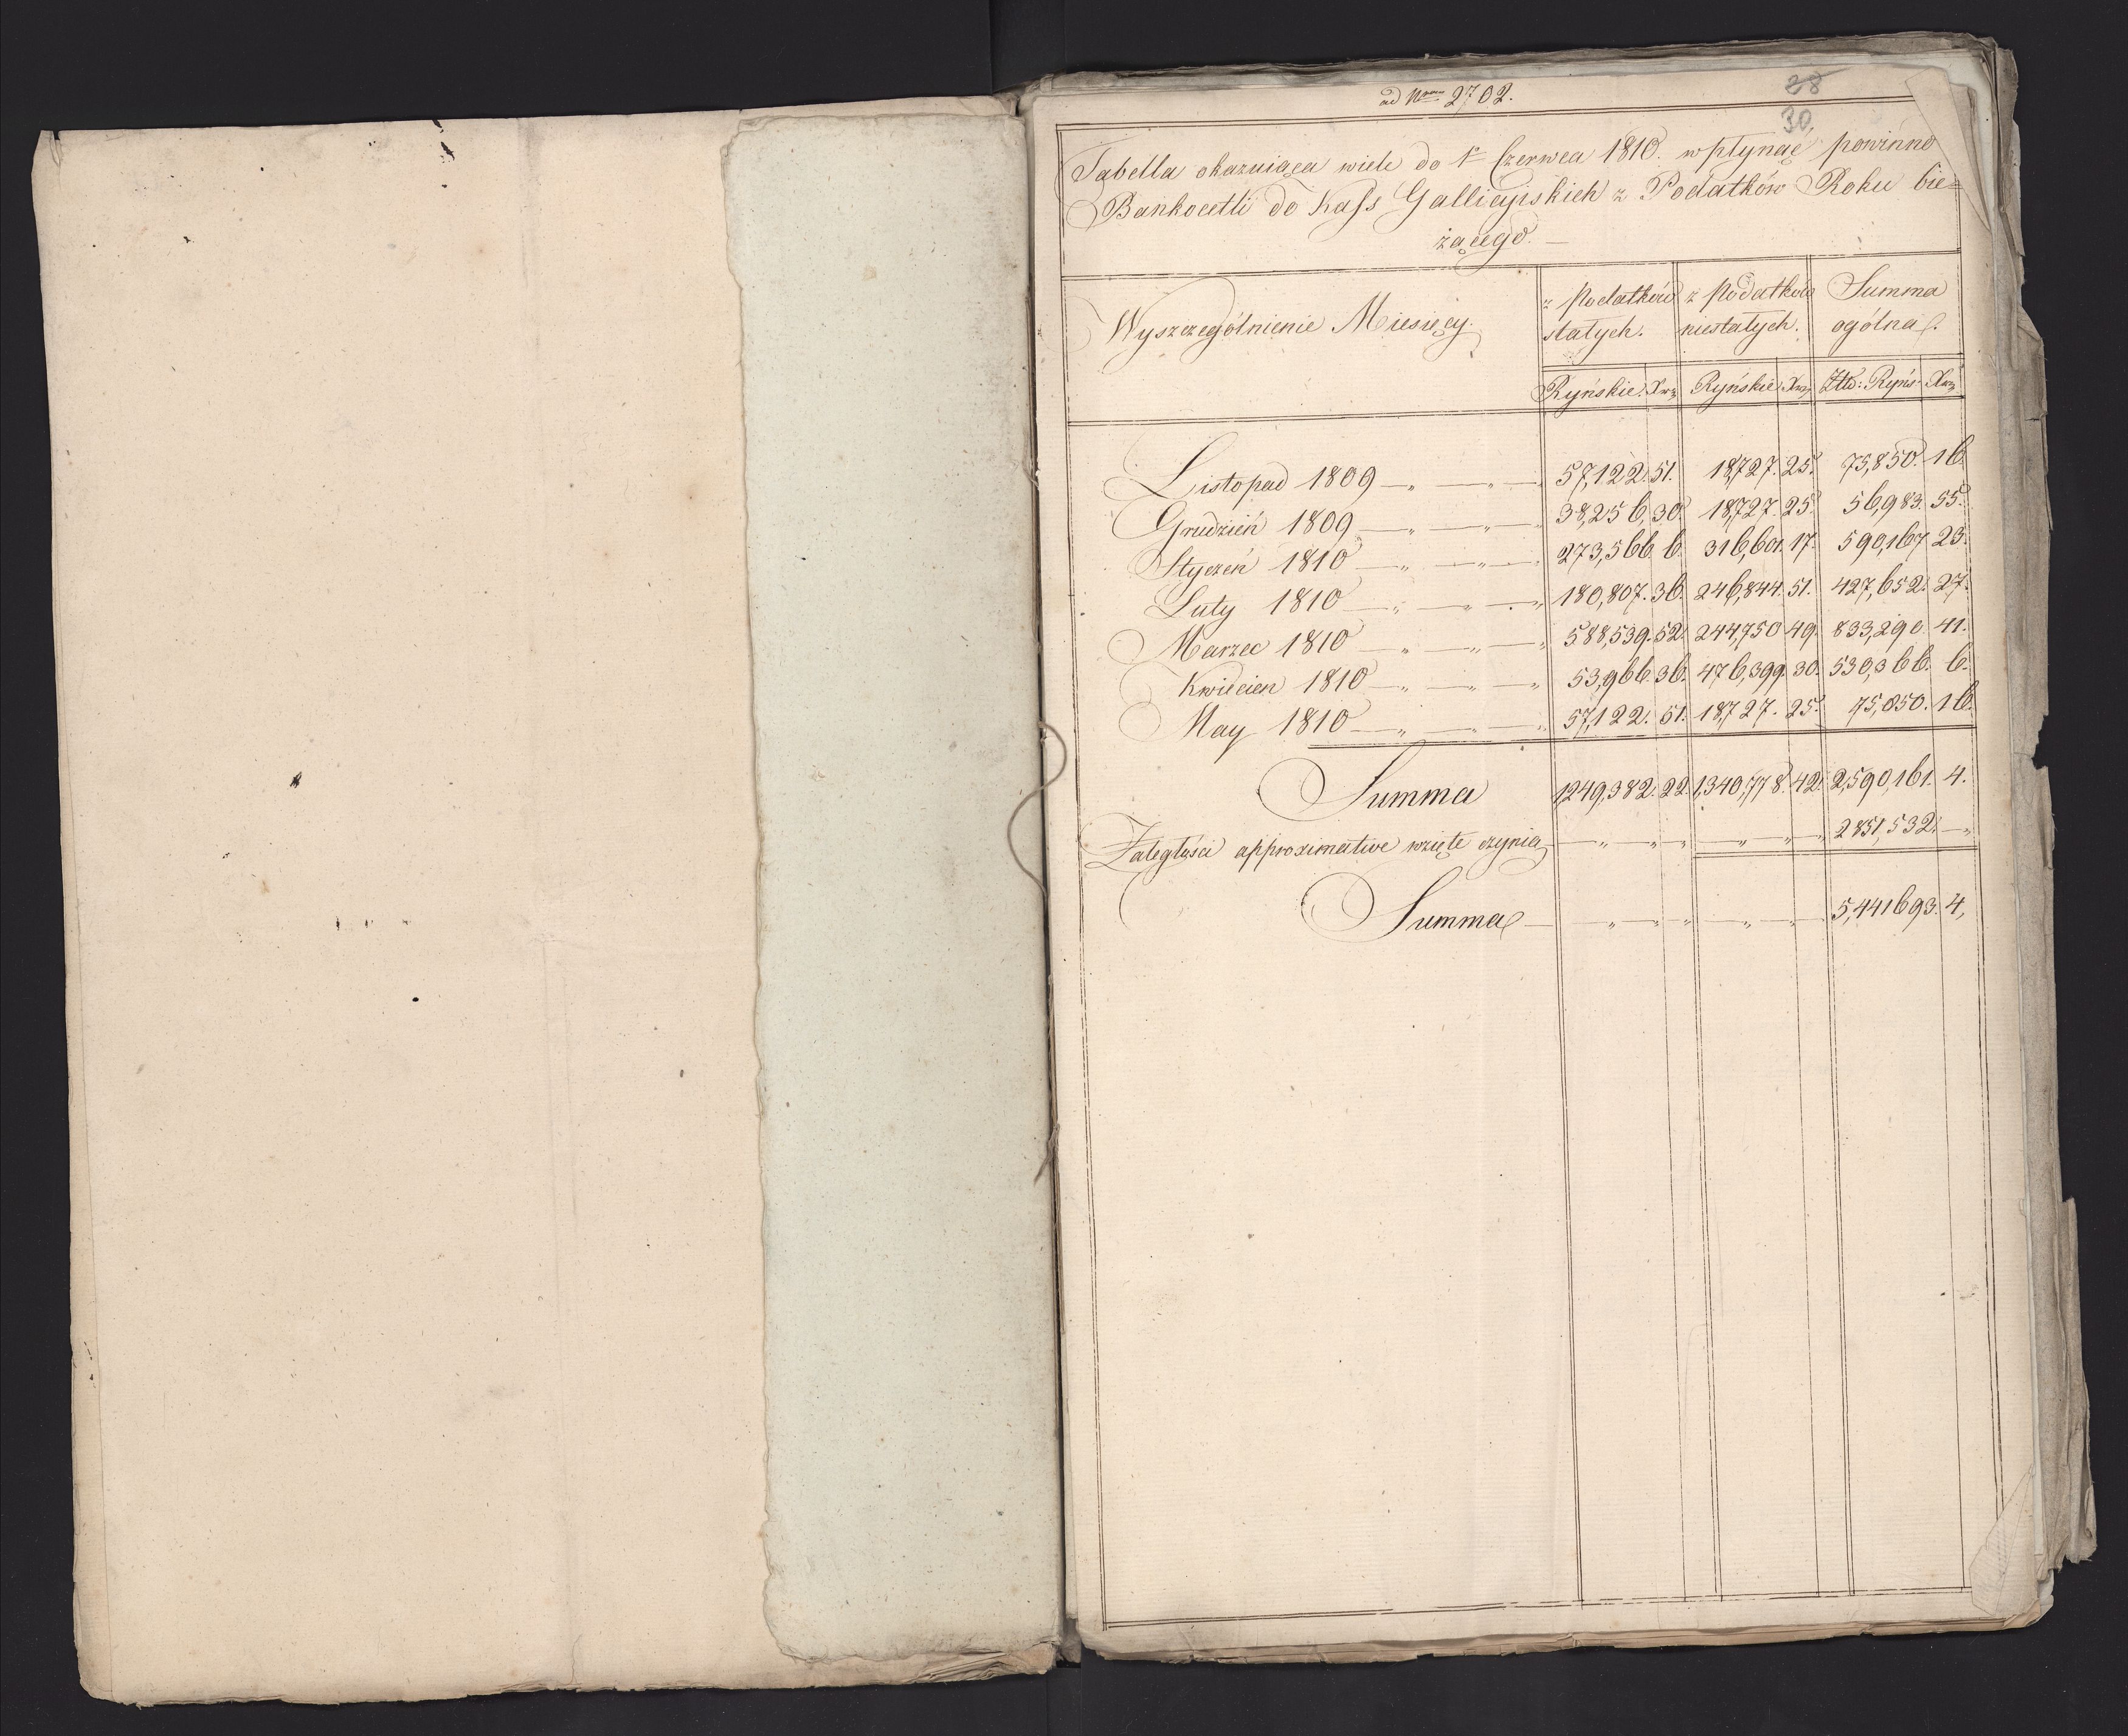 ad Nrum 2702.
28
30
Tabella okazuiąca wiele do 1º Czerwca 1810. wpłynąć powinno
Bankocetli do Kass Gallicyiskich z Podatków Roku bie=
żącego.
Wyszczególnienie Miesięcy. z Podatków stałych. z Podatków niestałych. Summa ogólna.
Ryńskie. Xrz Ryńskie Xrz Złło: Ryńs Xrz
Listopad 1809 57,122. 51. 18,727. 25. 75,850. 16.
Grudzień 1809 38,256. 30. 18,727. 25. 56,983. 55.
Styczeń 1810 273,566. 6. 316,601. 17. 590,167 23.
Luty 1810 180,807. 36. 246,844. 51. 427,652. 27.
Marzec 1810 588,539. 52. 244,750 49. 833,290. 41.
Kwiecien 1810 53,966. 36. 476,399. 30. 530,366. 6.
May 1810 57,122. 51. 18,727. 25. 75,850. 16.
Summa 1,249,382. 22. 1,340,778. 42. 2,590,161. 4.
Zaległości approximative wzięte czynią 2851,532.
Summa 5,441693. 4,